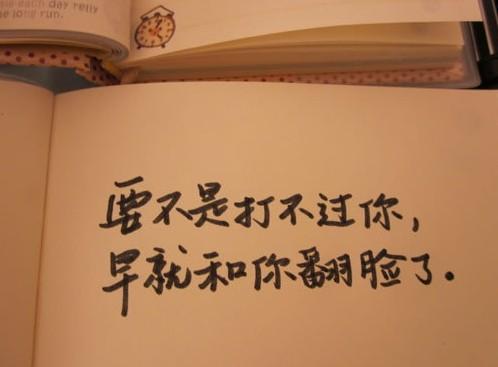 each day relly
e long run.
要不是打不过你，
早就和你翻脸了.